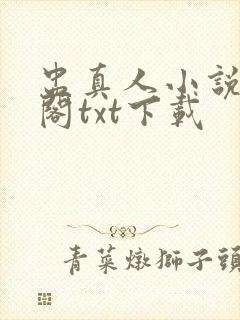 蛊真人小說
閣txt下載
青菜燉獅子頭